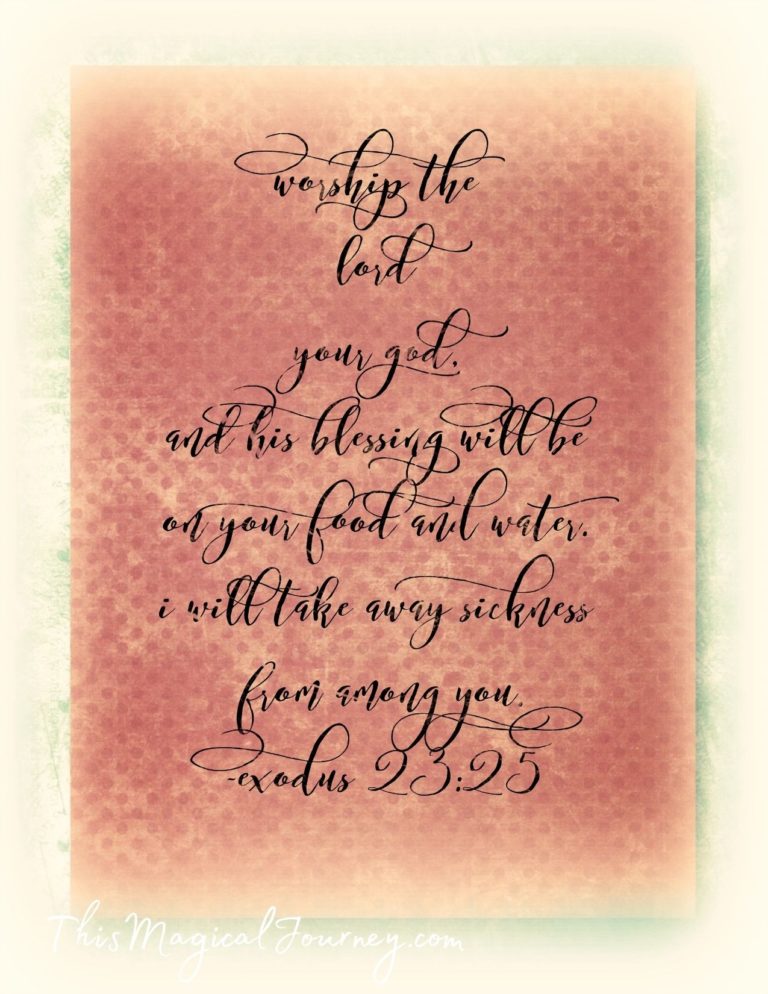 worship the
lord
your god,
and his blessing will be
on your food and water.
i will take away sickness
from among you.
-exodus 23:25
ThisMagicalJourney.com